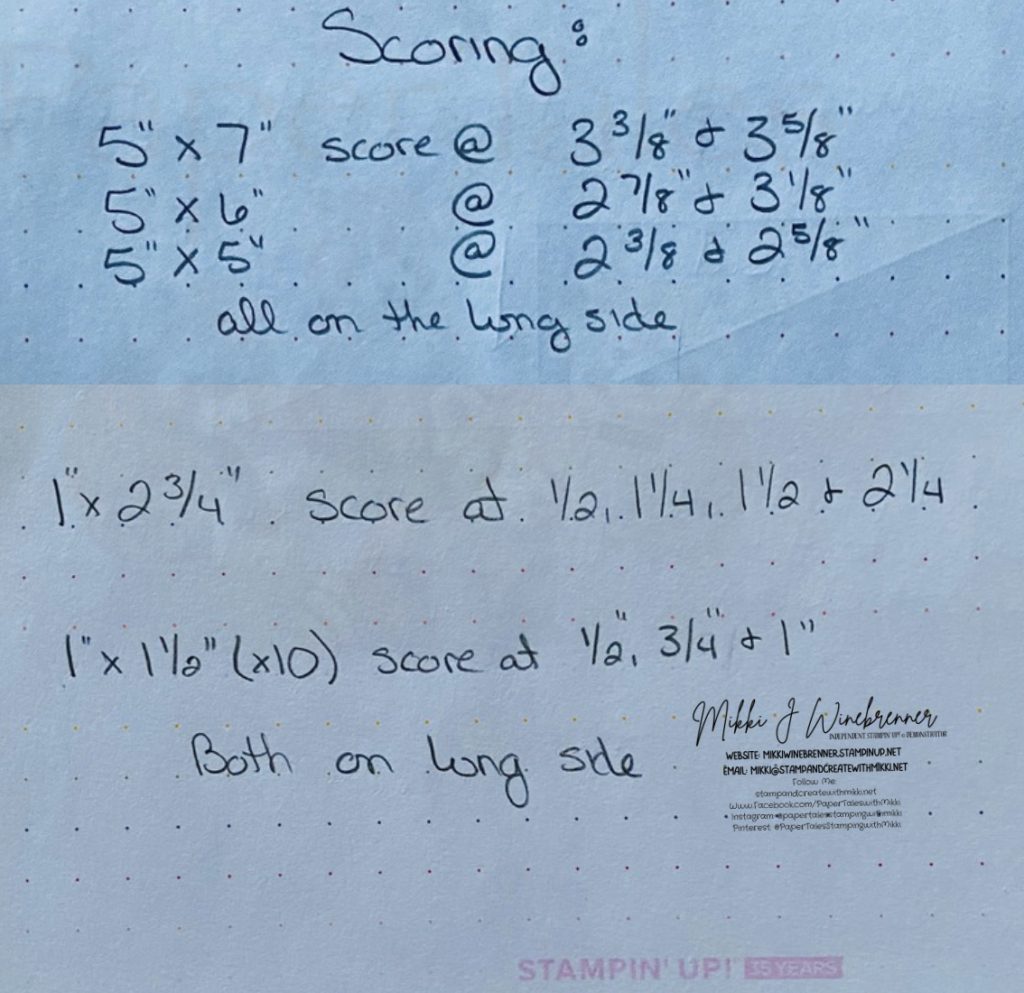 Scoring:
5" x 7" score @ 3 3/8" & 3 5/8"
5" x 6" @ 2 7/8" & 3 1/8"
5" x 5" @ 2 3/8 & 2 5/8"
all on the long side
1" x 2 3/4" score at 1/2, 1 1/4, 1 1/2 & 2 1/4
1" x 1 1/2" (x10) score at 1/2", 3/4" & 1"
Both on long side
Mikki J Winebrenner
INDEPENDENT STAMPIN' UP! ® DEMONSTRATOR
WEBSITE: MIKKIWINEBRENNER.STAMPINUP.NET
EMAIL: MIKKI@STAMPANDCREATEWITHMIKKI.NET
Follow Me:
stampandcreatewithmikki.net
www.facebook.com/PaperTaleswithMikki
Instagram @papertalesstampingwithmikki
Pinterest @PaperTalesStampingwithMikki
STAMPIN' UP! 35 YEARS